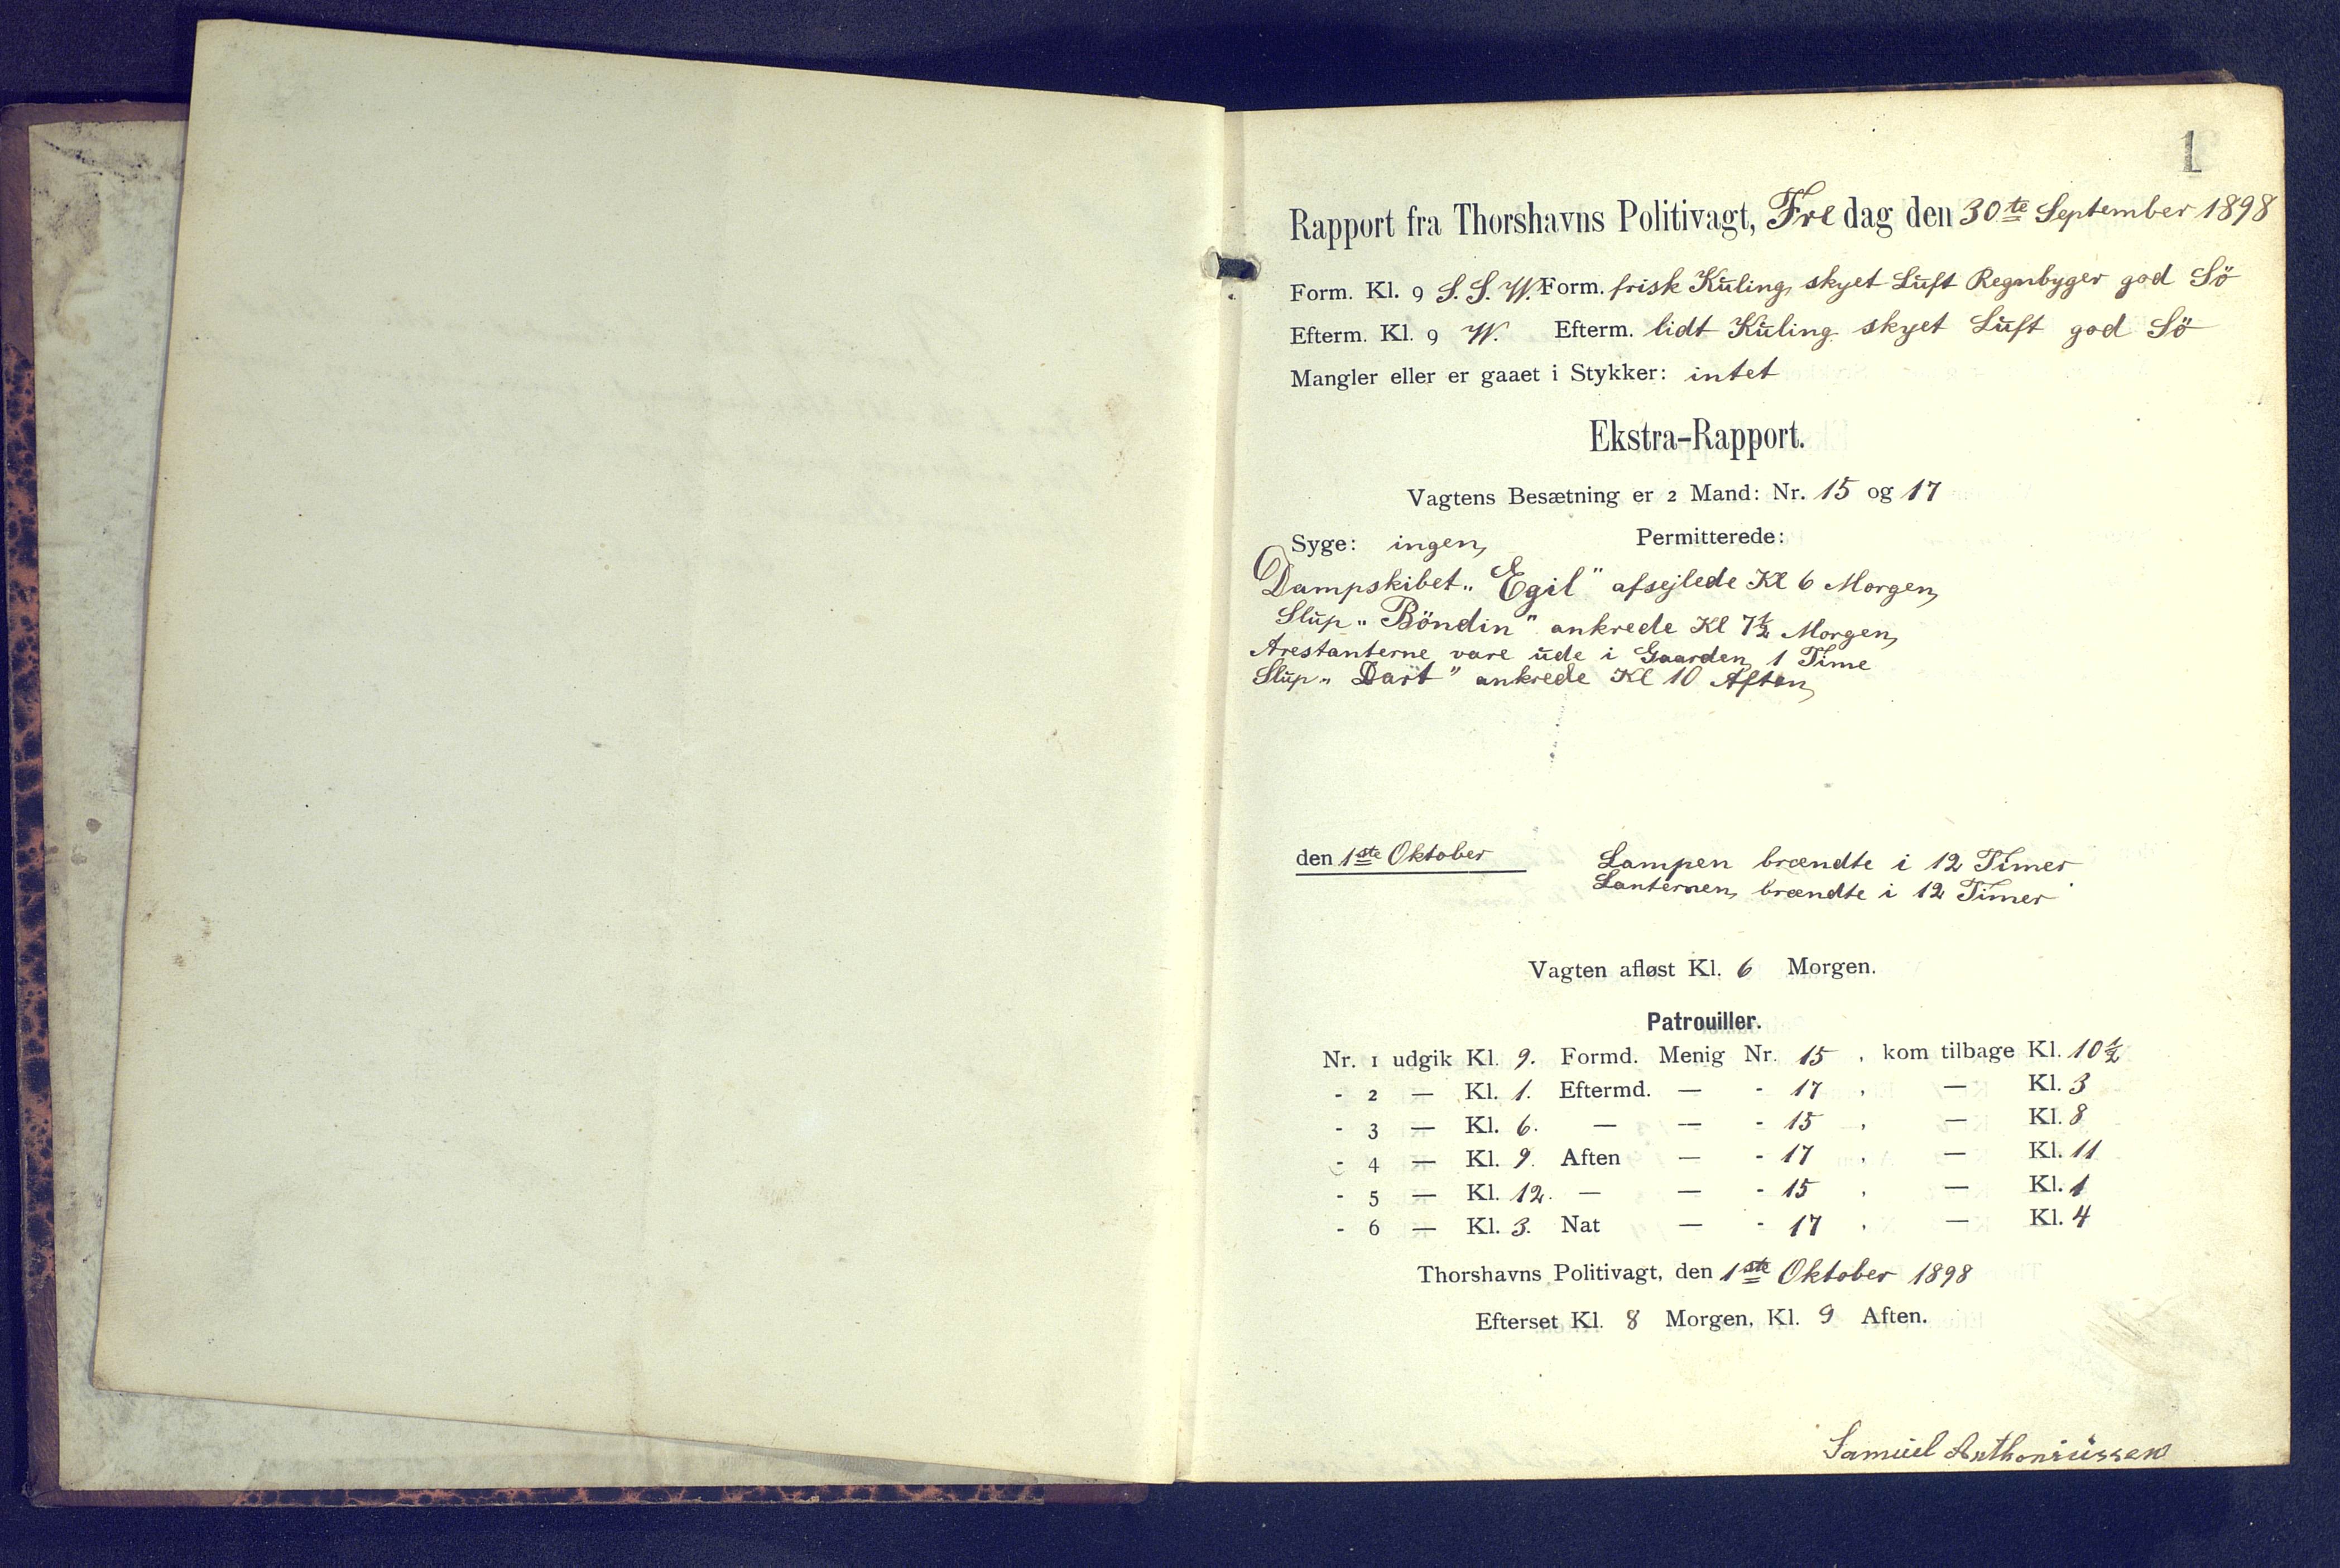 1
Rapport fra Thorshavns Politivagt, Fredag den 30te September 1898
Form. Kl. 9 S. S. W. Form. frisk Kuling, skyet Luft Regnbyger god Sö
Efterm. Kl. 9 W. Efterm. lidt Kuling skyet Luft god Sö
Mangler eller er gaaet i Stykker: intet
Ekstra-Rapport.
Vagtens Besætning er 2 Mand: Nr. 15 og 17
Syge: ingen, Permitterede:
Dampskibet „Egil" afsejlede Kl 6 Morgen,
Slup „Böndin" ankrede Kl 7½ Morgen,
Arestanterne vare ude i Gaarden 1 Time
Slup „Dart" ankrede Kl 10 Aften,
den 1ste Oktober Lampen brændte i 12 Timer
Lanternen, brændte i 12 Timer
Vagten afløst Kl. 6 Morgen.
Patrouiller.
Nr. 1 udgik Kl. 9. Formd. Menig Nr. 15, kom tilbage Kl. 10½
- 2 — Kl. 1. Eftermd. — - 17, — Kl. 3
- 3 — Kl. 6. — — - 15, — Kl. 8
- 4 — Kl. 9. Aften — - 17, — Kl. 11
- 5 — Kl. 12. — — - 15, — Kl. 1
- 6 — Kl. 3. Nat — - 17, — Kl. 4
Thorshavns Politivagt, den 1ste Oktober 1898
Efterset Kl. 8 Morgen, Kl. 9 Aften.
Samuel Anthoniussen